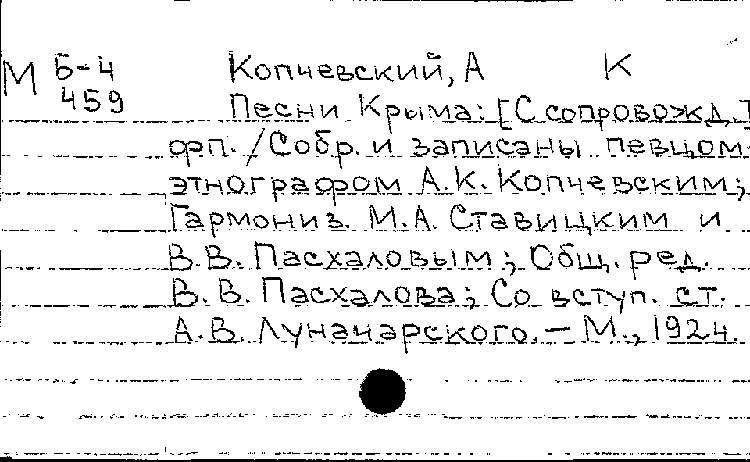 М Б-4 Копчевский, А К
459 Песни Крыма: [С сопровожд.]
фп. / Собр. и записаны певцом-
этнографом А.К. Копчевским;
Гармониз. М.А. Ставицким и
В.В. Пасхаловым; Общ. ред.
В.В. Пасхалова; Со вступ. ст.
А.В. Луначарского. – М., 1924.